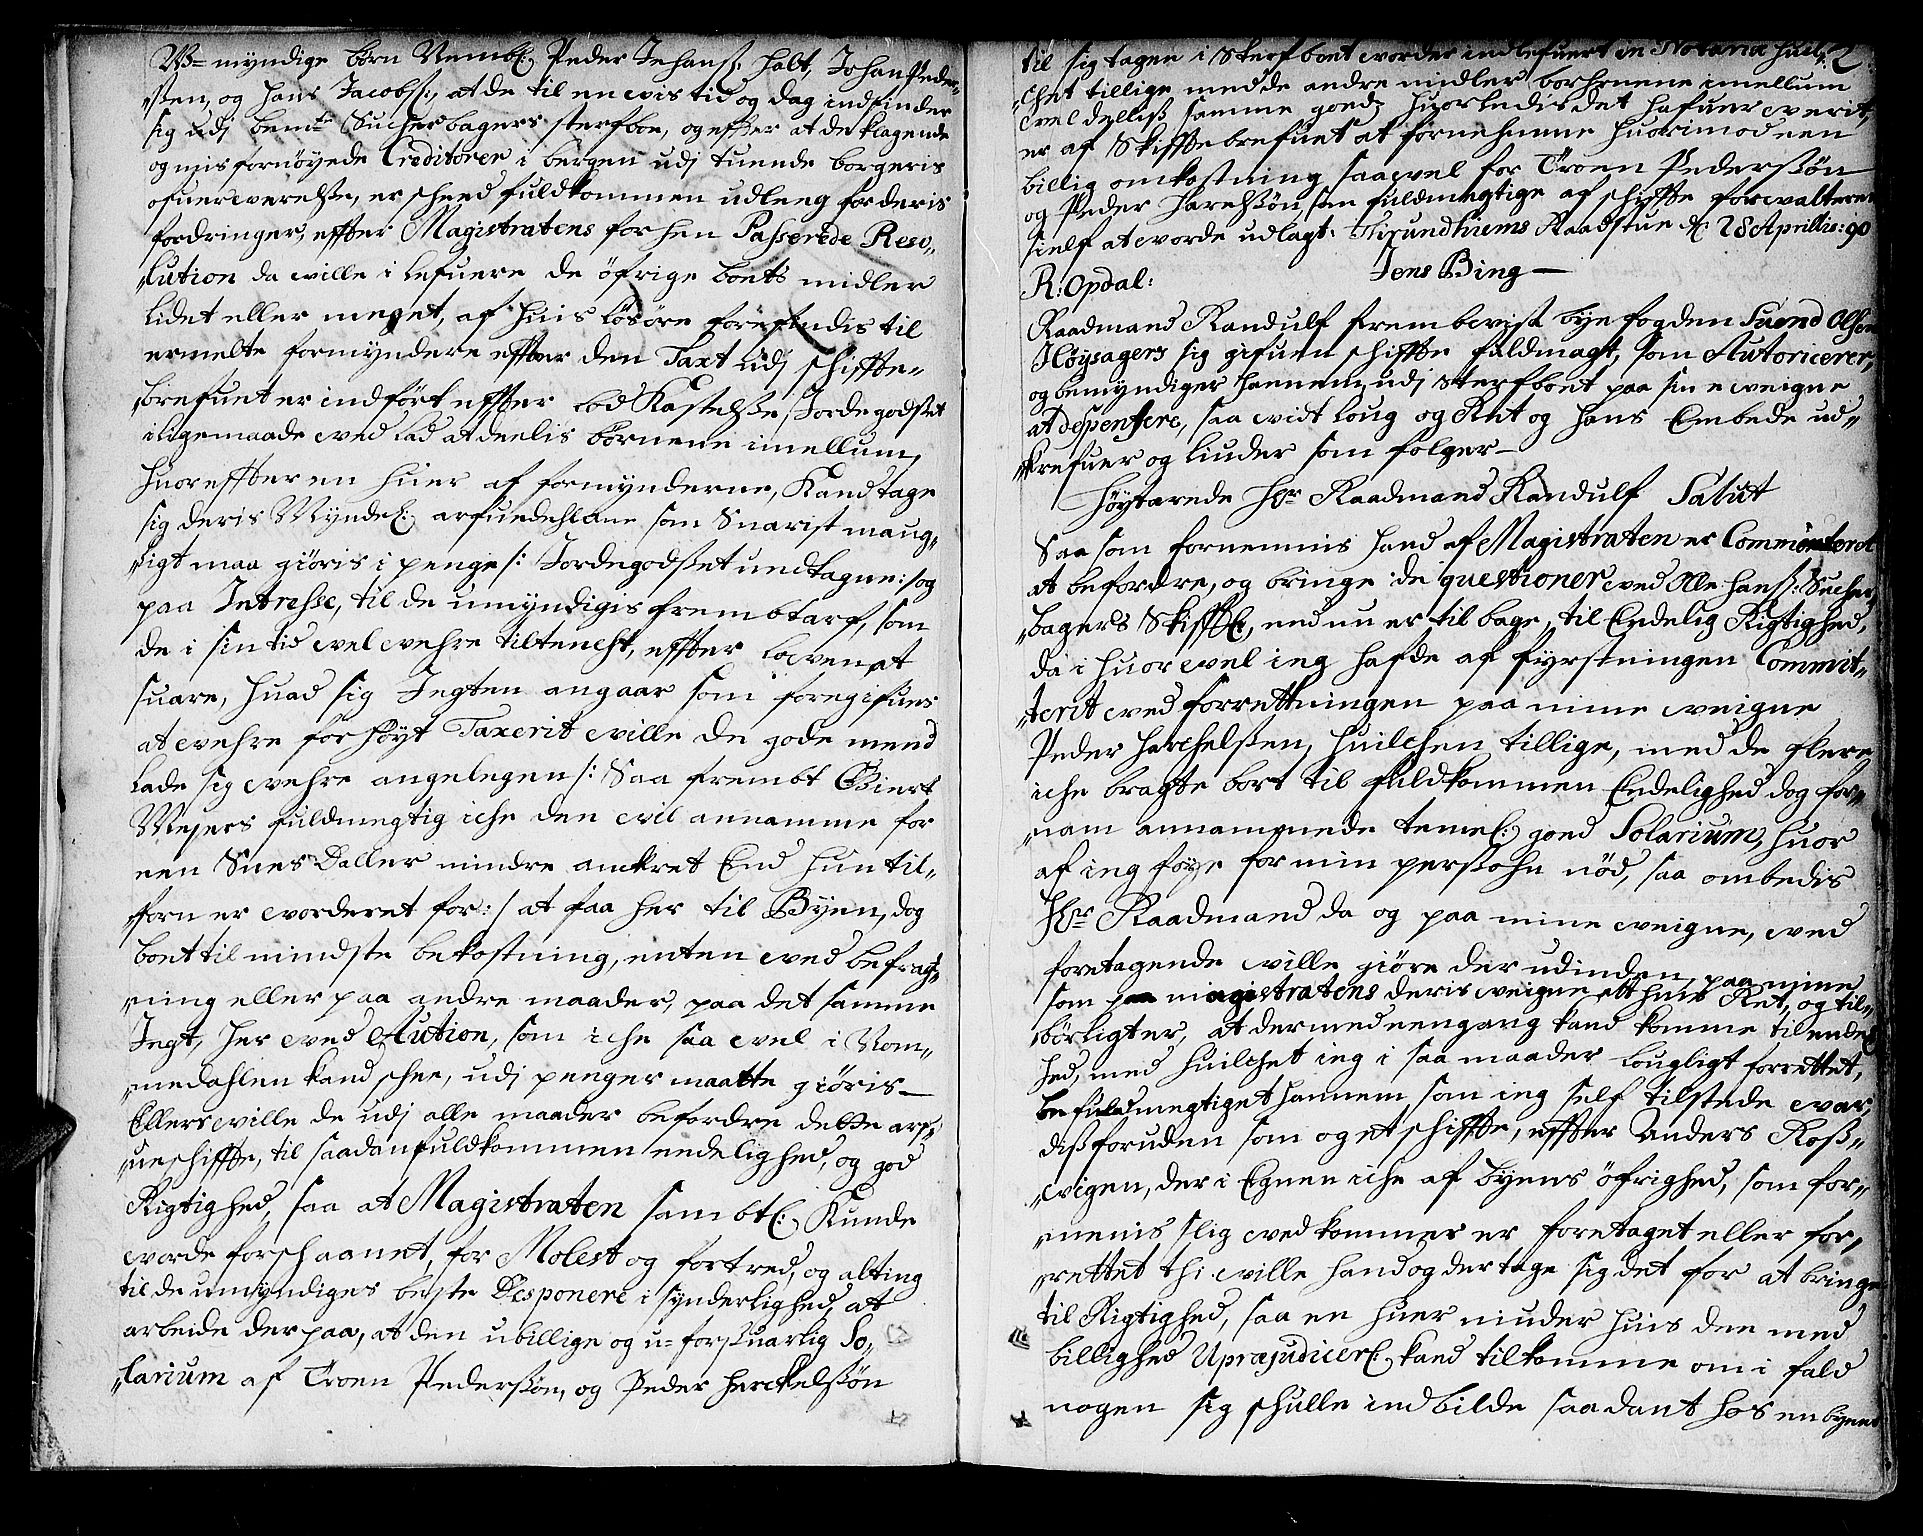 U=myndige børn Nembl: Peder Jehanss: halt, Johan Peder-
„sen, og Hans Jacobss:, at de til en vis tid og dag indfinder
sig udj bemte Sucherbagers sterfboe, og efter at de klagende
og misfornøyede Creditorer i bergen udj tuende borgeris
ofuerverelsse, er scheed fuldkommen udleg for deris
fordringer, effter Magistratens forhen Passerede Reso„
„lution da ville i lefuere de öfrige boets midler
lidet eller meget, af huis lösöre forefindis til
ermelte formyndere effter den Taxt udj schiffte„
„brefuet er indfört effter lod Kastelsse, Jordegodsset
iligemaade ved lod at deelis börnene imellum,
huoreffter en huer af formynderne, Kand tage
sig deris Myndl: arfuedehlene som Snarist maug„
„ligt maa giöris i penge /: Jordegodsset undtagne :/ og
paa Intresse, til de umyndigis frembtarf, som
de i sin tid vel vehre tiltencht, effter loven at
suare, huad sig Jegten angaar som foregifues
at vehre for höyt Taxerit ville de gode mend
lade sig vehre angelegen /: Saa frembt Giert
Meyers fuldmegtig iche den vil annamme for
een Snes Daller mindre anckret End hun til„
„forn er vorderet for :/ at faa her til Byen, dog
boet til mindste bekostning, enten ved befragt„
„ning eller paa andre maader, paa det samme
Jegt, her ved Aution, som iche saa vel i Rom„
„medahlen kand schee, udj penger maatte giöris —
Ellers ville de udj alle maader befordre dette arf„
„ueschiffte, til saadan fuldkommen endelighed, og god
Rigtighed, saa at Magistraten sambtl: Kunde
vorde forschaanet, for Molest og fortred, og alting
til de umyndiges beste Disponere i synderlighed, at
arbeide der paa, at den ubillige og u=forsuarlig So„
„larium af Troen Pederssøn, og Peder Herckelssøn
2
til sig tagen i Sterfboet vorder indlefuert in Notaria huil„
„chet tillige med de andre midler børhenene imellum
vel delliss samme goedz huorledis det hafuer verit,
er af Skifftebrefuet at fornehmme huorimod een
billig omkostning saavel for Troen Pederssøn
og Peder Harelssøn, sen fuldmegtige af schiffte forvalteren
sielf at vorde udlagt. Tirundhiems Raadstue d: 28 Aprillis: 90
R: Opdal: Jens Bing —
Raadmand Randulf frembviste bye fogden Suend Olsen
Höysagers sig gifuen schiffte fuldmagt, som Autoricerer,
og bemyndiger hannem, udj Sterfboet paa sine veigne
at despensere, saa vit loug og Ret og hans Embede ud„
„krefuer og liuder som fölger —
Höytärede Hr Raadmand Randulf Salut
Saa som fornemmis hand af Magistraten er Committeret
at befordre, og bringe de questioner ved Olle Hanss: Sucher„
„bagers Skiffte, end nu er til bage, til Endelig Rigtighed,
da i huor vel ieg hafde af fyrstningen Commit„
„terit ved forrettningen paa mine veigne
Peder Herchelssen, huilchen tillige, med de flere
iche bragte bort til fuldkommen Endelighed dog for„
„nam annammede temel: goed Solarium, huor
af ieg föye for min perssohn nöd, saa ombedis
Hr Raadmand da og paa mine veigne, ved
foretagende ville giöre der udinden, paa mine
som paa magistratens deris veigne alt huis Ret, og til„
börligt er, at dermed eengang kand komme til endel:
hed, med huilchet ieg i saa maader lougligt forrettet,
befuldmegtiget hannem som ieg self tilstede var,
dissforuden som og et schiffte, effter Anders Ross„
„vigen, der i Egnen iche af byens öfrighed, som for„
„menis slig ved kommer er foretaget eller for„
„rettet thi ville hand og der tage sig det for at bringe
til Rigtighed, saa en huer niuder huis den med
billighed Upræjudicerl: kand tilkomme om i fald
nogen sig schulle indbilde saadant hos en byens